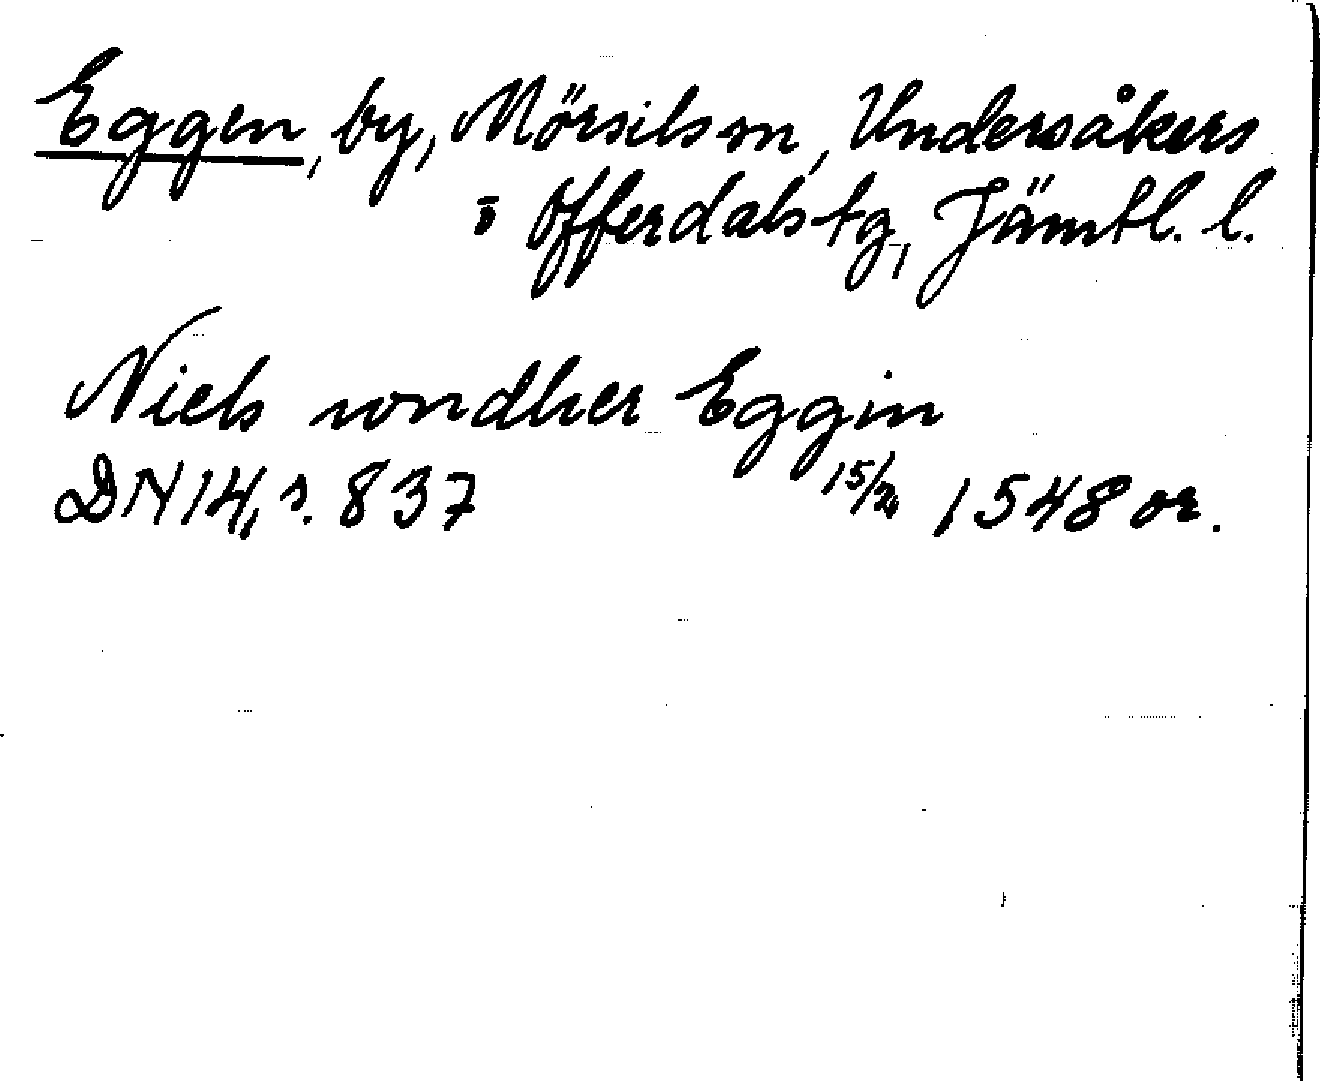 Eggen, by, Mörsils sn, Undersåkers
o Offerdals tg, Jämtl. l.
Niels wndher Eggin
DN 14, s. 837 15/2 1548 or.